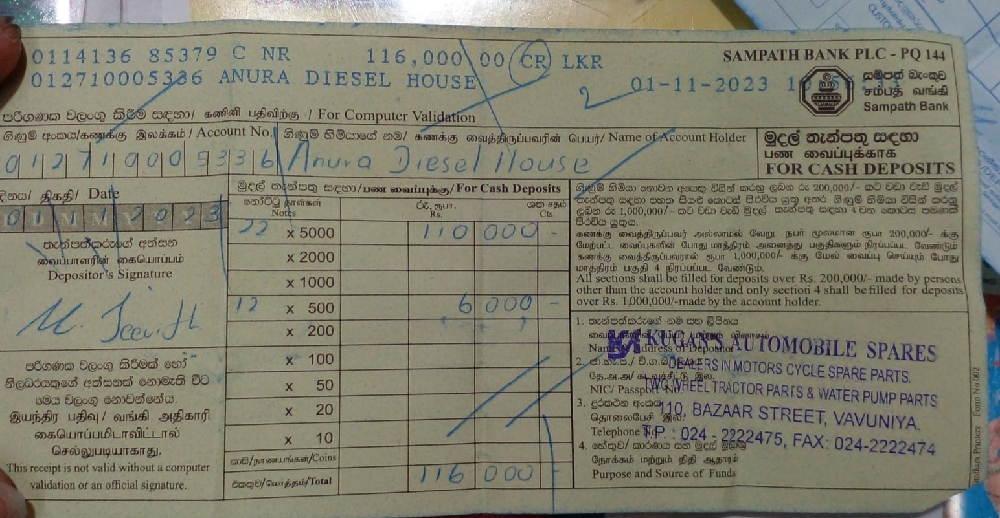 0114136 85379 C NR 116,000.00 CR LKR
012710005336 ANURA DIESEL HOUSE
01-11-2023
SAMPATH BANK PLC - PQ 144
සම්පත් බැංකුව
சம்பத் வங்கி
Sampath Bank
පරිගණක වලංගු කිරීම සඳහා/ கணினி பதிவிற்கு / For Computer Validation
ගිණුම් අංකය/கணக்கு இலக்கம் / Account No.
ගිණුම් හිමියාගේ නම/ கணக்கு வைத்திருப்பவரின் பெயர்/ Name of Account Holder
Anura Diesel House
මුදල් තැන්පතු සඳහා
பண வைப்புக்காக
FOR CASH DEPOSITS
දිනය/ திகதி/ Date
තැන්පත්කරුගේ අත්සන
வைப்பாளரின் கையொப்பம்
Depositor's Signature
පරිගණක වලංගු කිරීමක් හෝ
නිලධරයකුගේ අත්සනක් නොමැති විට
මෙය වලංගු නොවන්නේය.
இயந்திர பதிவு/ வங்கி அதிகாரி
கையொப்பமிடாவிட்டால்
செல்லுபடியாகாது.
This receipt is not valid without a computer
validation or an official signature.
මුදල් තැන්පතු සඳහා/பண வைப்புக்கு/For Cash Deposits
නෝට්ටු தாள்கள்
Notes
රු. ரூபா.
Rs.
ශත சதம்
Cts.
22 x 5000 110 000 -
x 2000
x 1000
12 x 500 6 000 -
x 200
x 100
x 50
x 20
x 10
කාසි/நாணயங்கள்/Coins
එකතුව/மொத்தம்/Total 116 000 -
கணக்கு வைத்திருப்பவர் அல்லாமல் வேறு நபர் மூலமான ரூபா 200,000/- க்கு
மேற்பட்ட வைப்புகளின் போது மாத்திரம் அனைத்து பகுதிகளும் நிரப்பப்பட வேண்டும்
கணக்கு வைத்திருப்பவரால் ரூபா 1,000,000/- க்கு மேல் வைப்பு செய்யும் போது
மாத்திரம் பகுதி 4 நிரப்பப்பட வேண்டும்.
All sections shall be filled for deposits over Rs. 200,000/- made by persons
other than the account holder and only section 4 shall be filled for deposits
over Rs. 1,000,000/-made by the account holder.
1. තැන්පත්කරුගේ නම සහ ලිපිනය
KUGAN'S AUTOMOBILE SPARES
DEALERS IN MOTORS CYCLE SPARE PARTS.
2.
NIC/ Passport No.
TWO WHEEL TRACTOR PARTS & WATER PUMP PARTS
3. දුරකථන අංකය
110, BAZAAR STREET, VAVUNIYA.
தொலைபேசி இல.
Telephone
T.P : 024 - 2222475, FAX: 024-2222474
4.
நோக்கம் மற்றும் நிதி ஆதாரம்
Purpose and Source of Funds